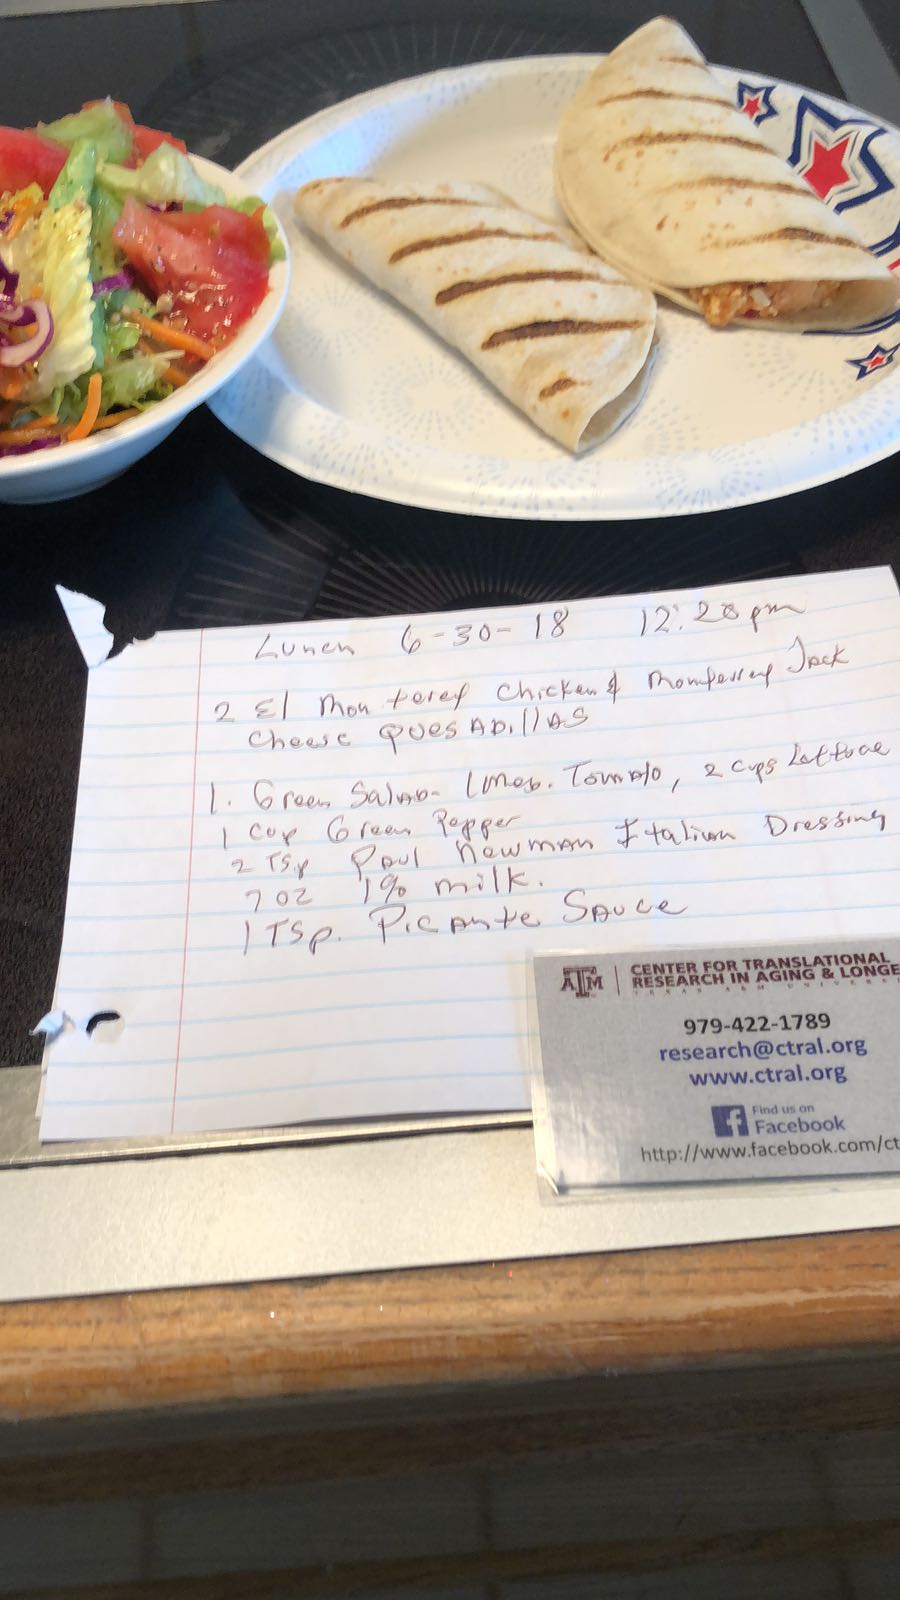 Lunch 6-30-18 12:28 pm
2 El Monterey Chicken & Monterrey Jack
Cheese QuesADillAS
1. Green SalAD- 1 Med. Tomato, 2 cups Lettuce
1 cup Green Pepper
2 TSp Paul Newman Italian Dressing
7 oz 1% milk.
1 TSp. PicAnte SAuce
ATM CENTER FOR TRANSLATIONAL
RESEARCH IN AGING & LONGE
TEXAS A&M UNIVERS
979-422-1789
research@ctral.org
www.ctral.org
f Find us on
Facebook
http://www.facebook.com/ct